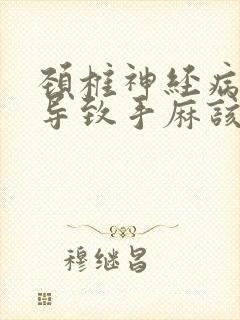 颈椎神经病
导致手麻该
穆继昌